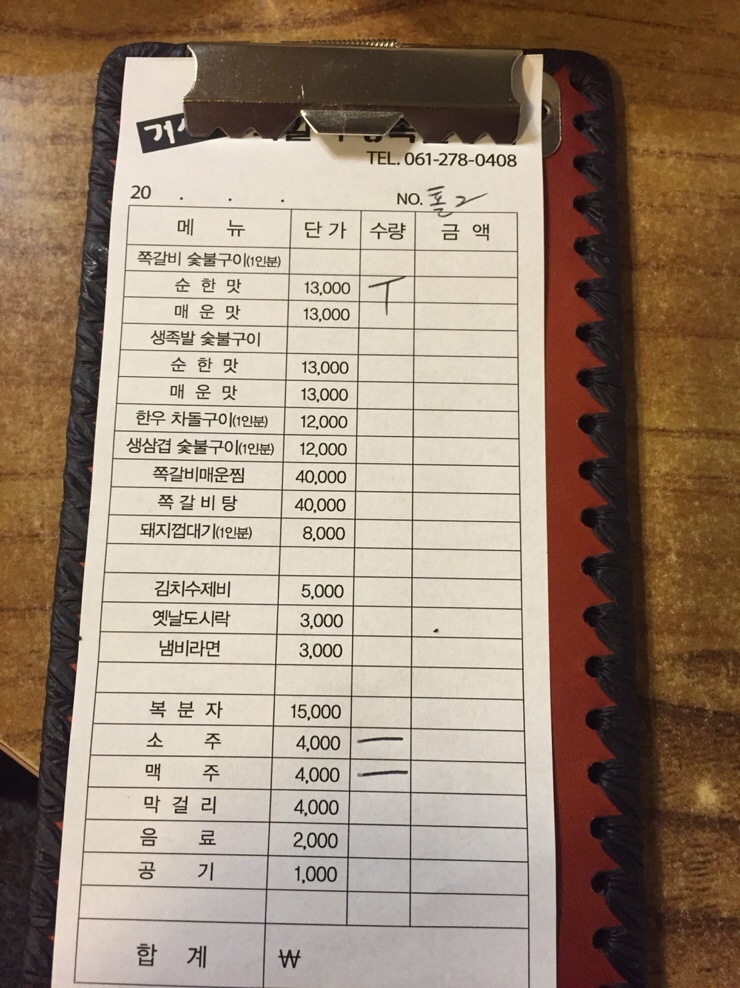 TEL. 061-278-0408
20 . . . NO. 홀2
메 뉴 단 가 수량 금 액
쪽갈비 숯불구이(1인분)
순 한 맛 13,000
매 운 맛 13,000
생족발 숯불구이
순 한 맛 13,000
매 운 맛 13,000
한우 차돌구이(1인분) 12,000
생삼겹 숯불구이(1인분) 12,000
쪽갈비매운찜 40,000
쪽 갈 비 탕 40,000
돼지껍대기(1인분) 8,000
김치수제비 5,000
옛날도시락 3,000
냄비라면 3,000
복 분 자 15,000
소 주 4,000 一
맥 주 4,000 一
막 걸 리 4,000
음 료 2,000
공 기 1,000
합 계 ₩